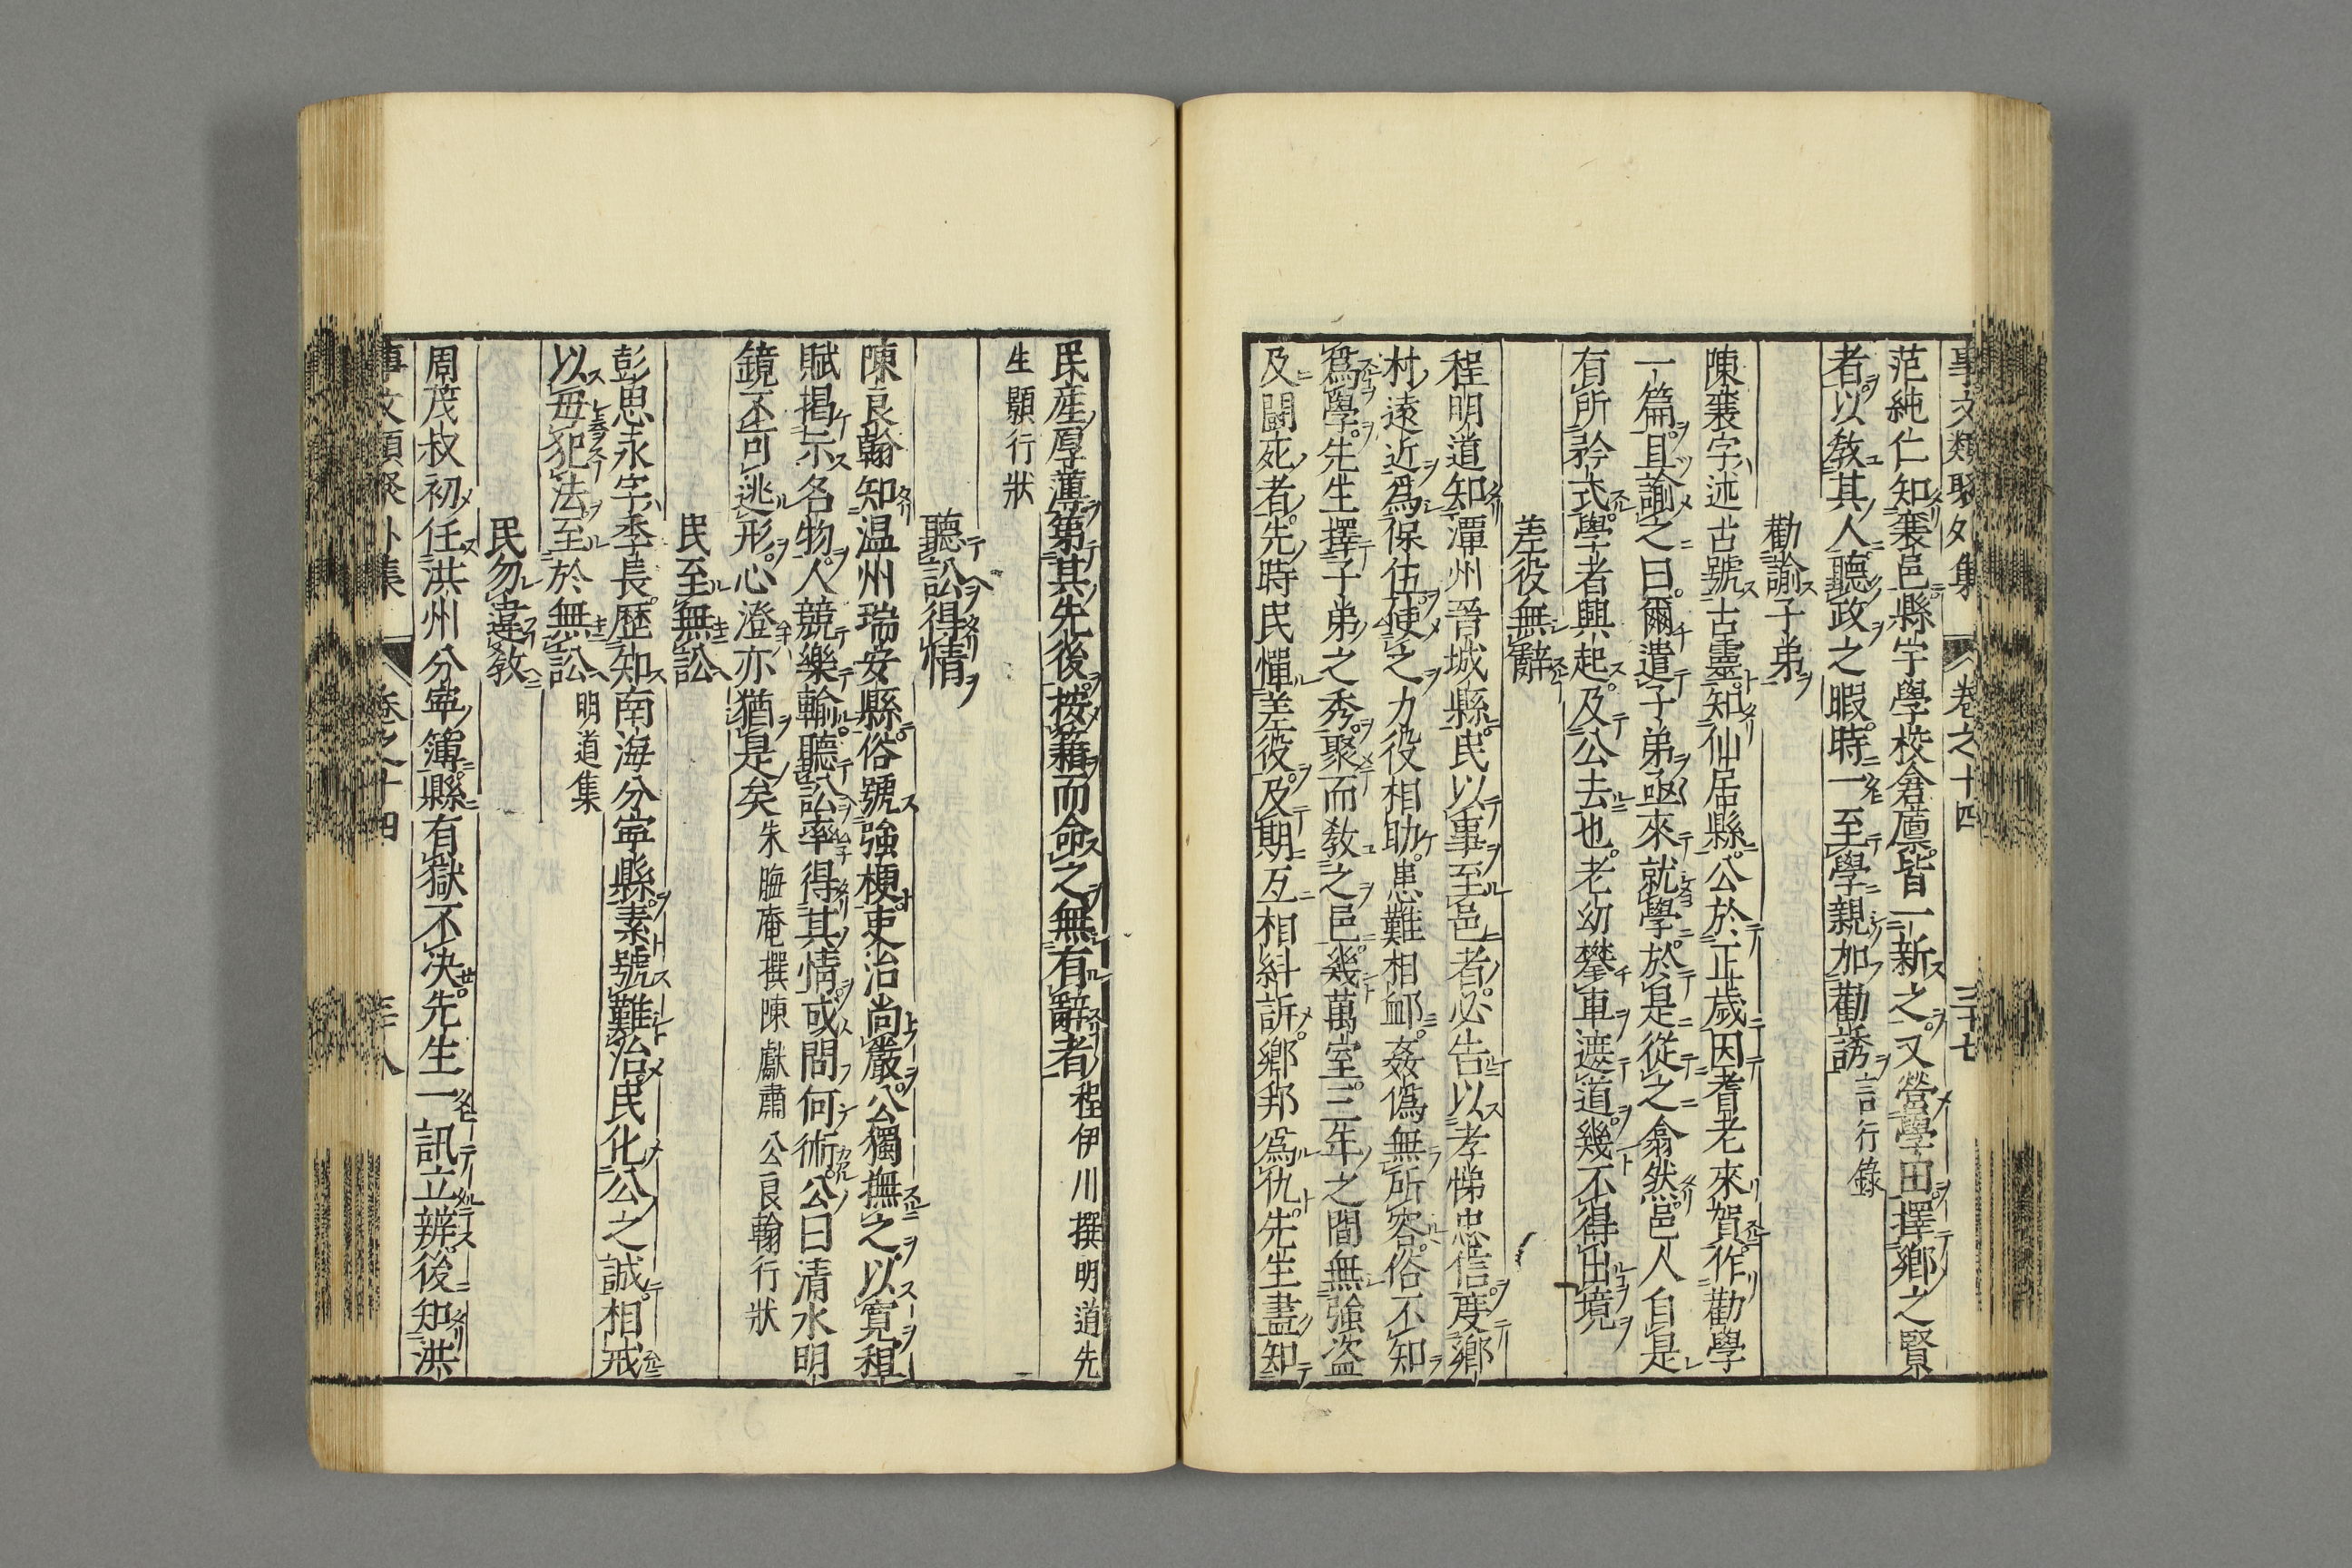 事文類聚外集 卷之十四 三十七
范純仁知襄邑縣宇學校倉廩皆一新之又營學田擇鄉之賢
者以敎其人聽政之暇時一至學親加勸誘言行錄
勸諭子弟
陳襄字述古號古靈知仙居縣公於正歲因耆老來賀作勸學
一篇且諭之曰爾遣子弟亟來就學於是從之翕然邑人自是
有所矜式學者興起及公去也老幼攀車遮道幾不得出境
差役無辭
程明道知澤州晉城縣民以事至邑者必告以孝悌忠信度鄉
村遠近爲保伍使之力役相助患難相䘏姦偽無所容俗不知
爲學先生擇子弟之秀聚而敎之邑幾萬室三年之間無強盜
及鬪死者先時民憚差役及期互相糾訴鄉邦爲仇先生盡知
民産厚薄第其先後按籍而命之無有辭者程伊川撰明道先
生顥行狀
聽訟得情
陳良翰知温州瑞安縣俗號強梗吏治尚嚴公獨撫之以寛租
賦揭示名物人競樂輸聽訟率得其情或問何術公曰清水明
鏡不可逃形心澄亦猶是矣朱晦庵撰陳獻肅公良翰行狀
民至無訟
彭思永字季長歷知南海分寧縣素號難治民化公之誠相戒
以毋犯法至於無訟明道集
民勿違敎
周茂叔初任洪州分寧簿縣有獄不决先生一訊立辨後知洪
事文類聚外集 卷之十四 三十八